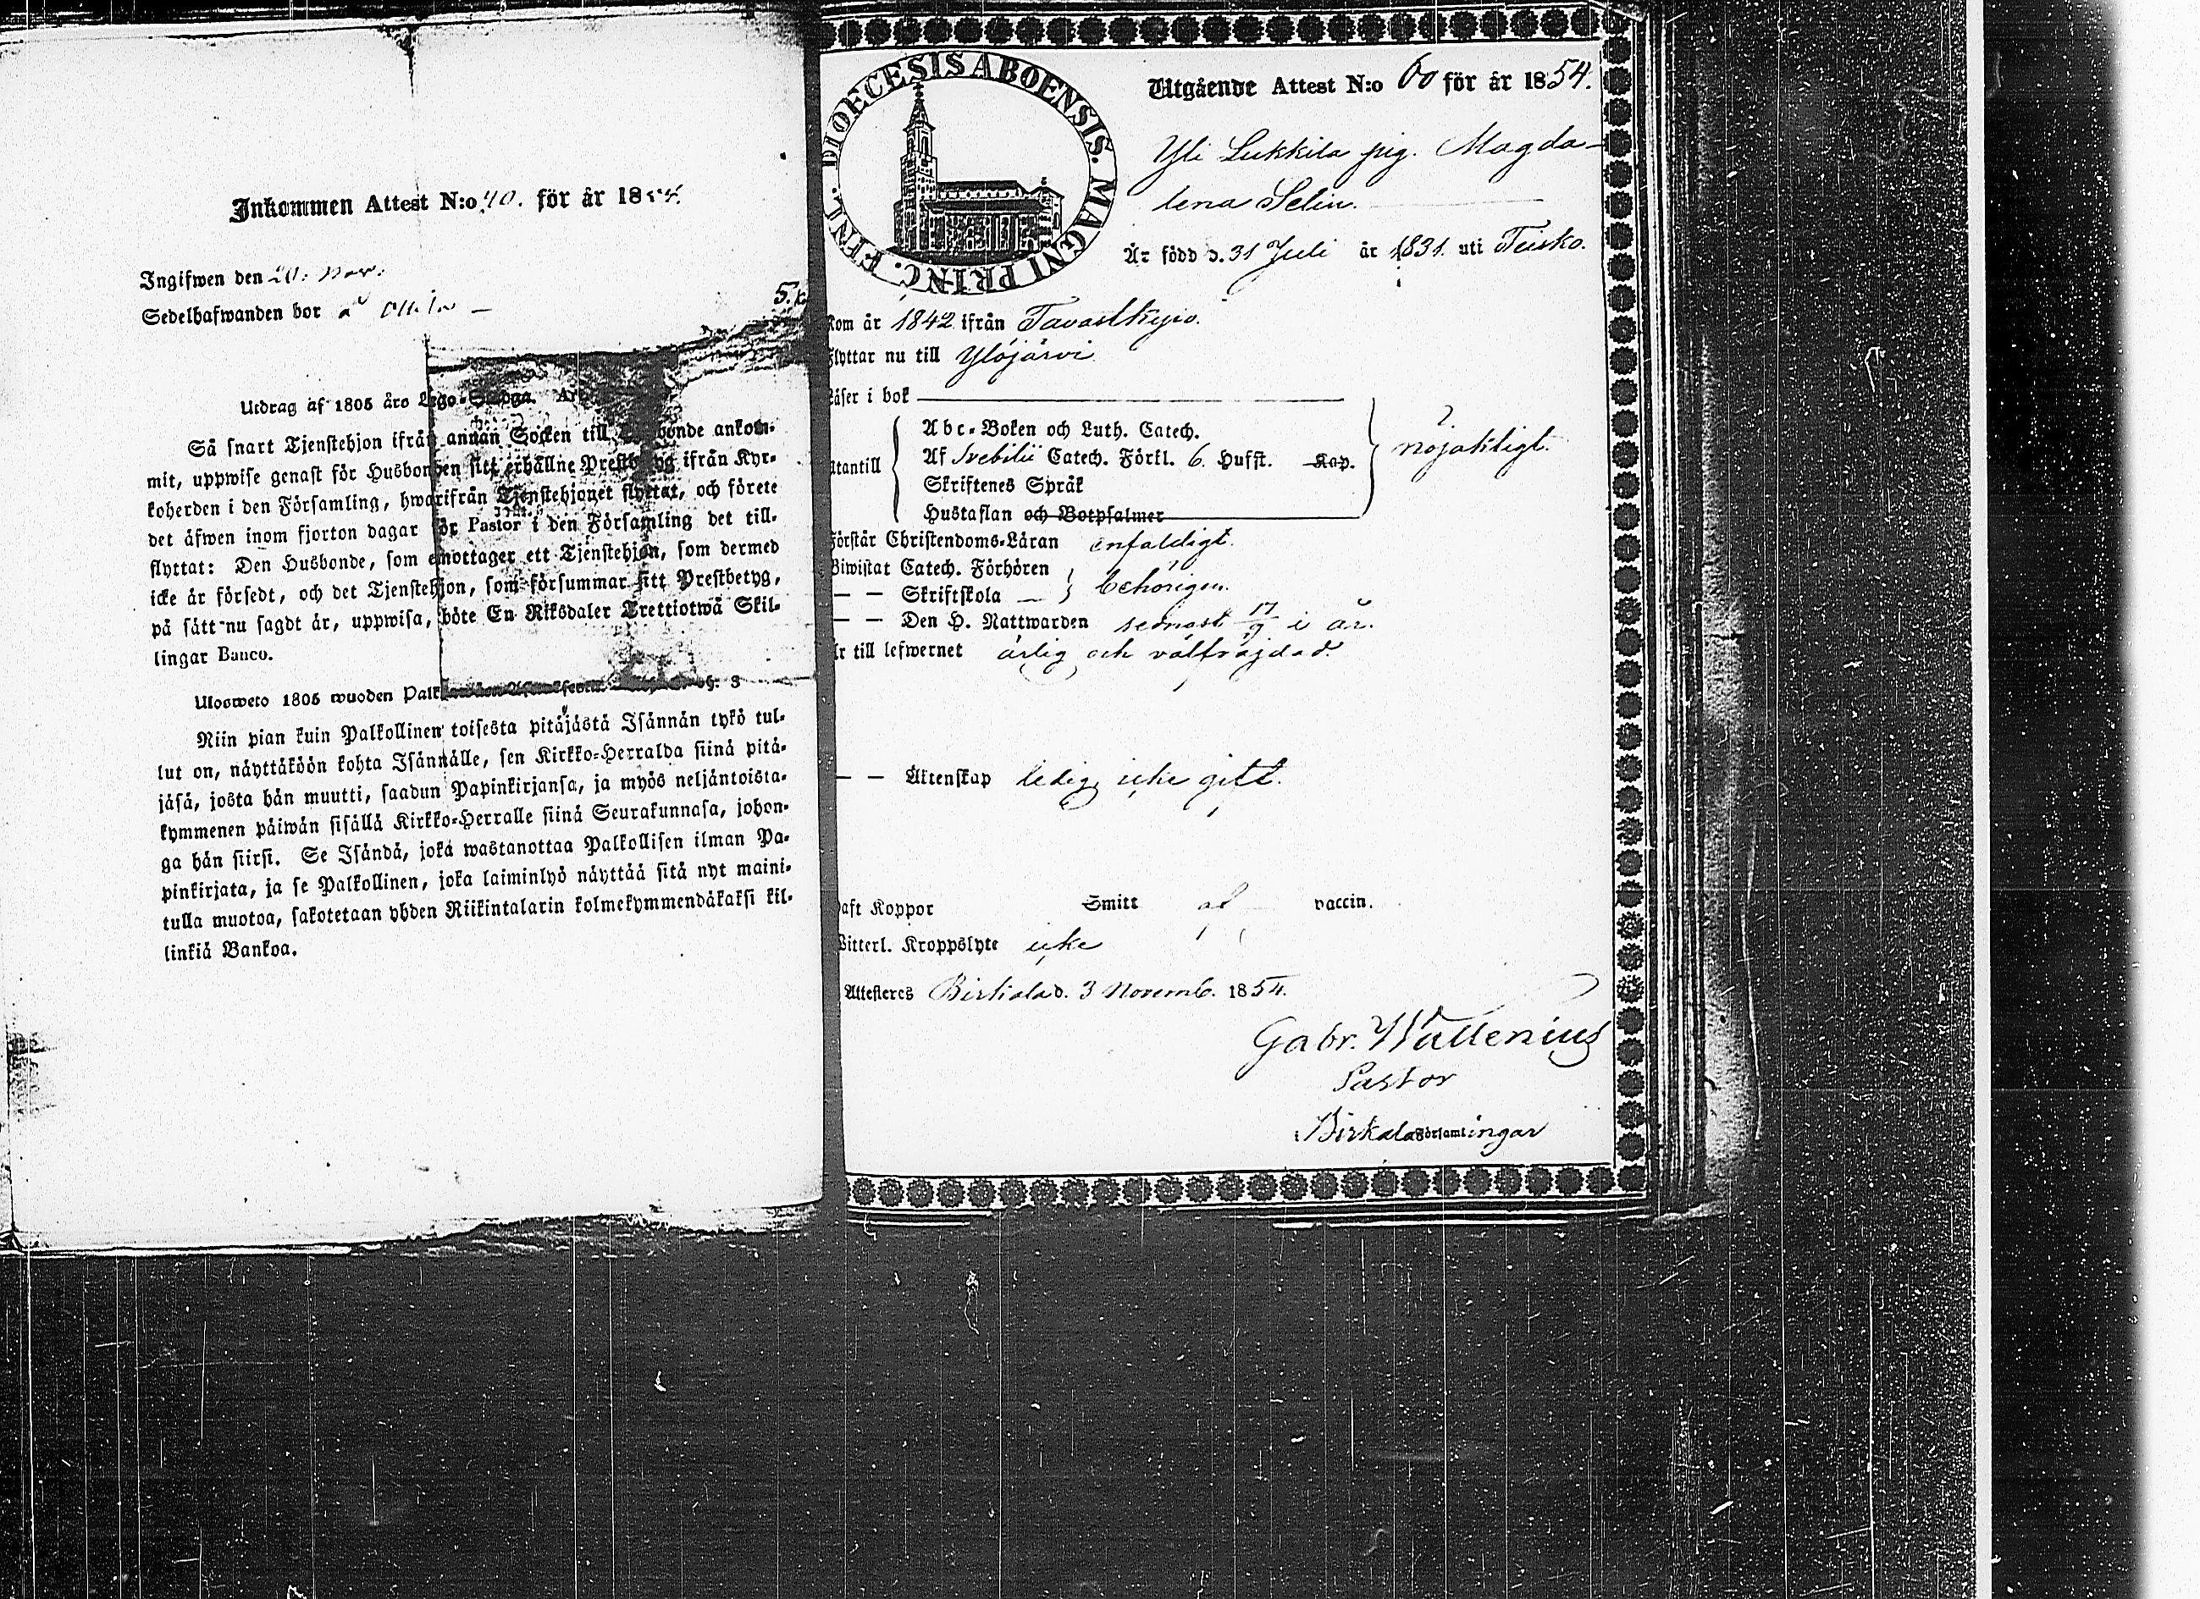 Inkommen Attest N:o 40. för år 1854.
Ingifwen den 20. Nov.
Sedelhafwanden bor å
5. k
Utdrag af 1805 års Lego-Stadga.
Så snart Tjenstehjon ifrån annan Socken till Husbonde ankom-
mit, uppwise genast för Husbonden sitt erhållne Prestbetyg ifrån Kyr-
koherden i den Församling, hwarifrån Tjenstehjonet flyttat, och förete
det äfwen inom fjorton dagar för Pastor i den Församling det till-
flyttat: Den Husbonde, som emottager ett Tjenstehjon, som dermed
icke är försedt, och det Tjenstehjon, som försummar sitt Prestbetyg,
på sätt nu sagdt är, uppwisa, böte En Riksdaler Trettiotwå Skil-
lingar Banco.
Ulosweto 1805 wuoden 3
Niin pian kuin Palkollinen toisesta pitäjästä Isännän tykö tul-
lut on, näyttäköön kohta Isännälle, sen Kirkko-Herralda siinä pitä-
jäsä, josta hän muutti, saadun Papinkirjansa, ja myös neljäntoista-
kymmenen päiwän sisällä Kirkko-Herralle siinä Seurakunnasa, johon-
ga hän siirsi. Se Isändä, joka wastanottaa Palkollisen ilman Pa-
pinkirjata, ja se Palkollinen, joka laiminlyö näyttää sitä nyt maini-
tulla muotoa, sakotetaan yhden Riikintalarin kolmekymmendäkaksi kil-
linkiä Bankoa.
DIOECESIS ABOENSIS. MAGNI PRINC. FINL.
Utgående Attest N:o 60 för år 1854.
Yli Lukkila pig. Magda-
lena Selin.
Är född d. 31 Juli år 1831. uti Teisko.
Kom år 1842 ifrån Tavastkyro.
Flyttar nu till Ylöjärvi
Läser i bok
Abc-Boken och Luth. Catech.
Utantill Af Svebilii Catech. Förkl. 6. Hufst. Kap. nöjaktligt.
Skriftenes Språk
Hustaflan och Botpsalmer
Förstår Christendoms-Läran enfaldigt.
Biwistat Catech. Förhören
— — Skriftskola — behörigen.
— — Den H. Nattwarden senast 17/9 i år.
Är till lefwernet ärlig och välfräjdad.
— — Äktenskap ledig, icke gift.
Haft Koppor Smitt af vaccin.
Witterl. Kroppslyte icke
Attesteres Birkala d. 3 Novemb. 1854.
Gabr. Wallenius
Pastor
i Birkala Församlingar